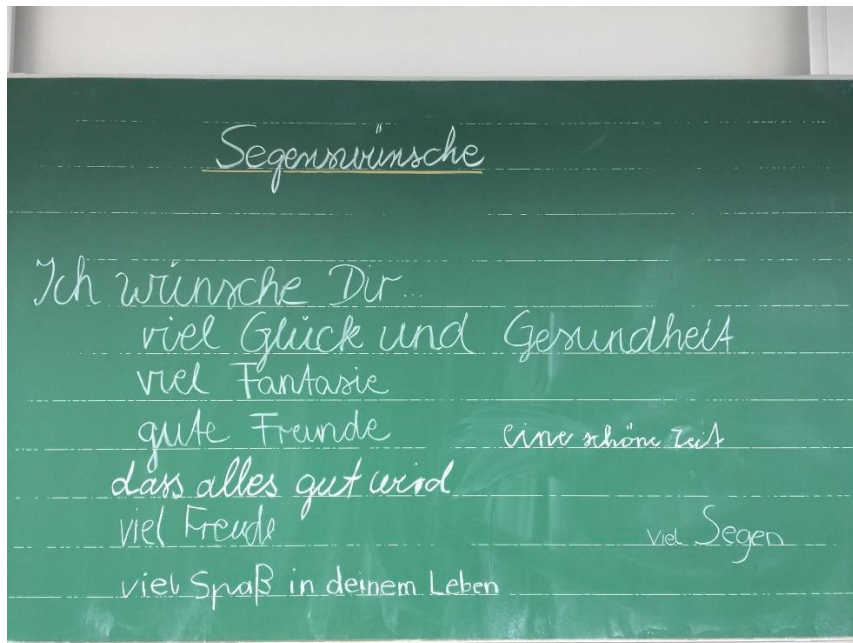 Segenswünsche
Ich wünsche Dir...
viel Glück und Gesundheit
viel Fantasie
gute Freunde
eine schöne Zeit
dass alles gut wird
viel Freude
viel Segen
viel Spaß in deinem Leben